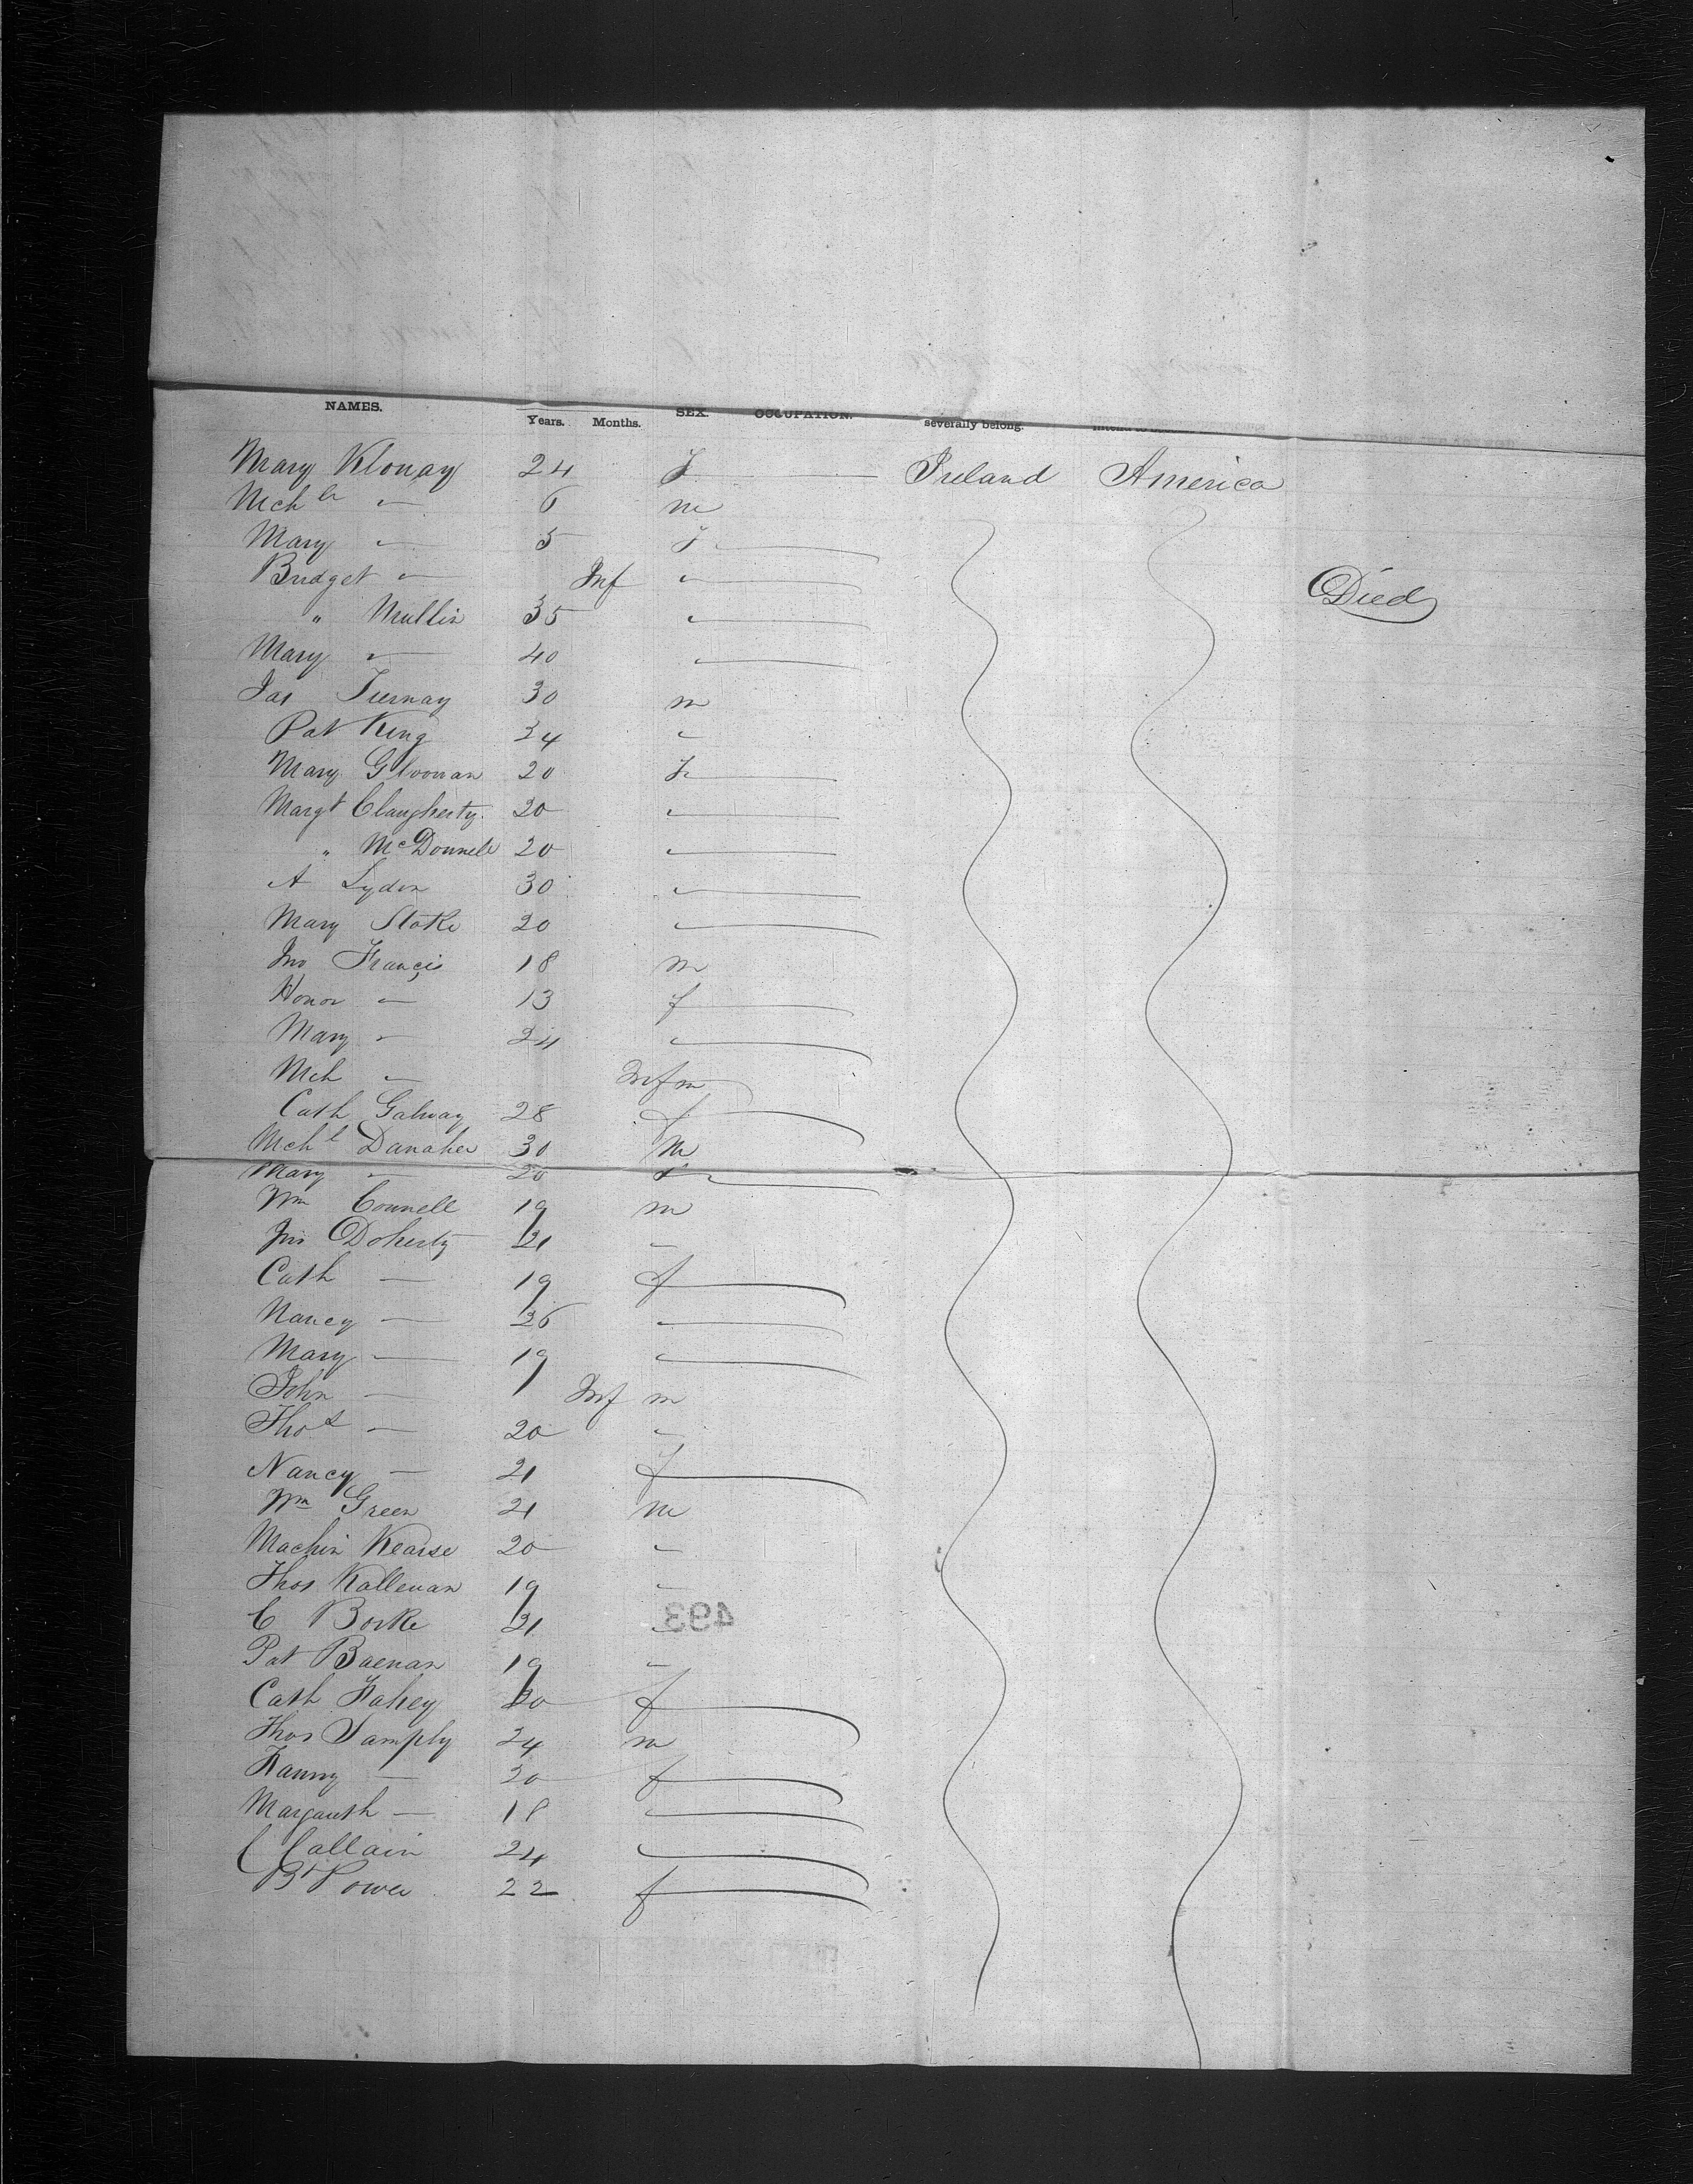 NAMES. Years. Months. SEX. OCCUPATION. severally belong.
Mary Klonay 24 f Ireland America
Mch " 6 m
Mary " 5 f
Bridget " Inf " Died
" Mullin 35 "
Mary " 40 "
Jas Tiernay 30 m
Pat King 34 "
Mary Gloonan 20 f
Margt Claugherty 20 "
" McDonnell 20 "
A Lydon 30 "
Mary Stoke 20 "
Jno Francis 18 m
Honor " 13 f
Mary " 24 "
Mch " Inf m
Cath Galway 28 f
Mchl Danaher 30 m
Mary " 20 f
Wm Connell 19 m
Jno Doherty 21 "
Cath — 19 f
Nancy — 26 "
Mary — 19 "
John — Inf m
Thos — 20 "
Nancy — 21 f
Wm Green 21 m
Machin Kearse 20 "
Thos Kallenan 19 "
C Borke 21 "
493
Pat 19 "
Cath Fahey 20 f
Thos Samply 24 m
Fanny — 30 f
— 18 "
C Callain 24 "
Bt Power 22 f